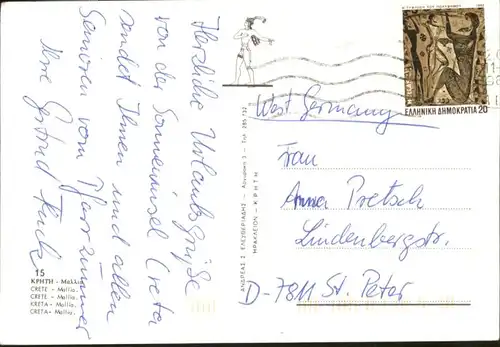 Herzliche Urlaubsgrüße
von der Sonneninsel Creta
sendet Ihnen und allen
Senioren vom Pfarrzimmer
Ihre Gertrud Fuchs
15
ΚΡΗΤΗ - Μαλλια
CRETE - Mallia.
CRETE - Mallia.
KRETA - Mallia.
CRETA - Mallia.
ΑΝΔΡΕΑΣ Σ. ΕΛΕΥΘΕΡΙΑΔΗΣ
ΗΡΑΚΛΕΙΟΝ - ΚΡΗΤΗ
ΕΛΛΗΝΙΚΗ ΔΗΜΟΚΡΑΤΙΑ 20
West Germany
Frau
Anna Pretsch
Lindenbergstr.
D-7811 St. Peter